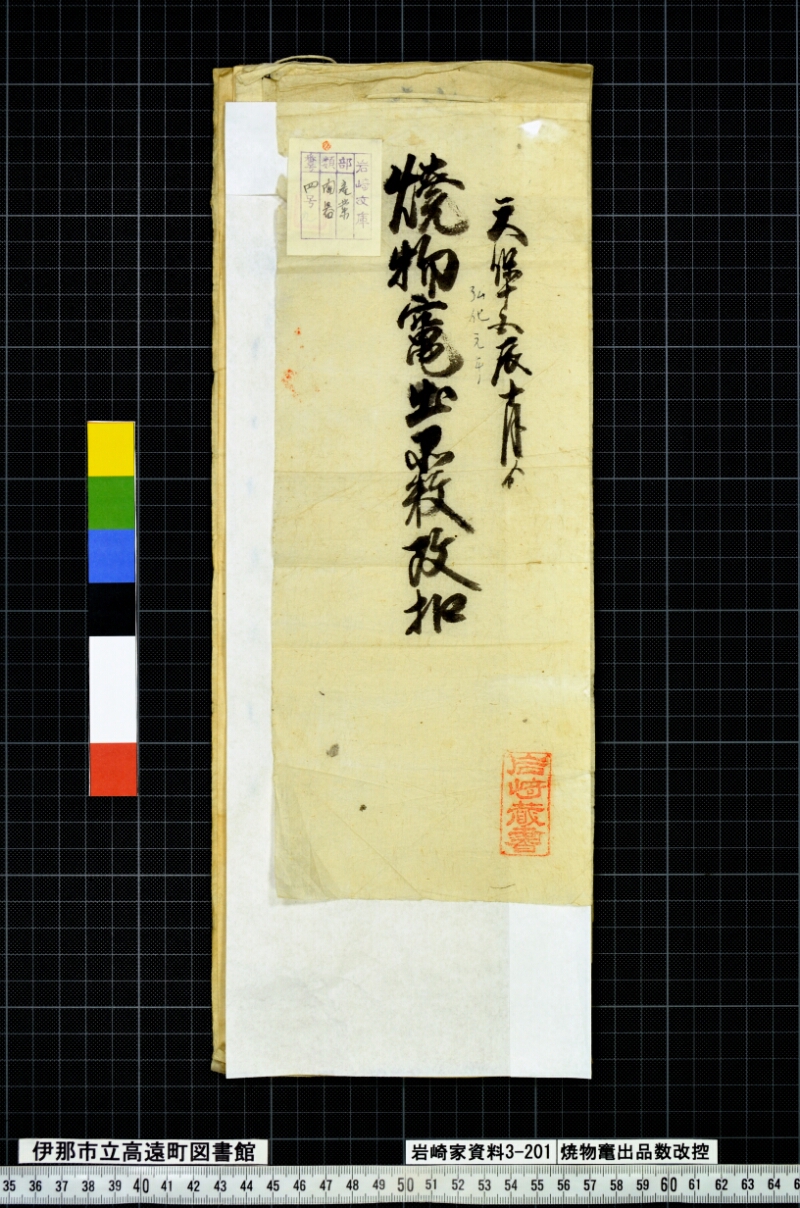 天保十五辰十月分
弘化元年
焼物竃出不数改扣
岩崎文庫
部 産業
類 陶器
番 四号
岩崎蔵書
伊那市立高遠町図書館
岩崎家資料3-201 焼物竃出品数改控
35 36 37 38 39 40 41 42 43 44 45 46 47 48 49 50 51 52 53 54 55 56 57 58 59 60 61 62 63 64